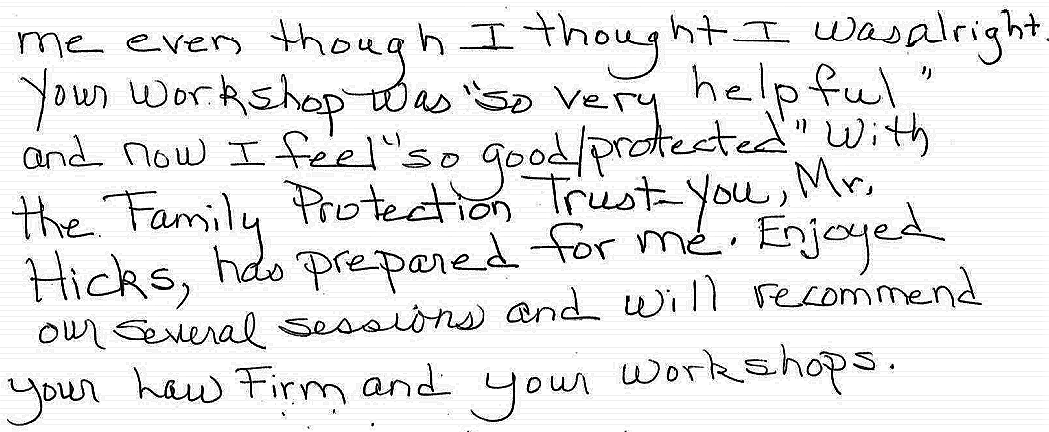 me even though I thought I was alright.
Your Workshop was "so very helpful"
and now I feel "so good/protected" with
the Family Protection Trust you, Mr.
Hicks, has prepared for me. Enjoyed
our several sessions and will recommend
your Law Firm and your workshops.